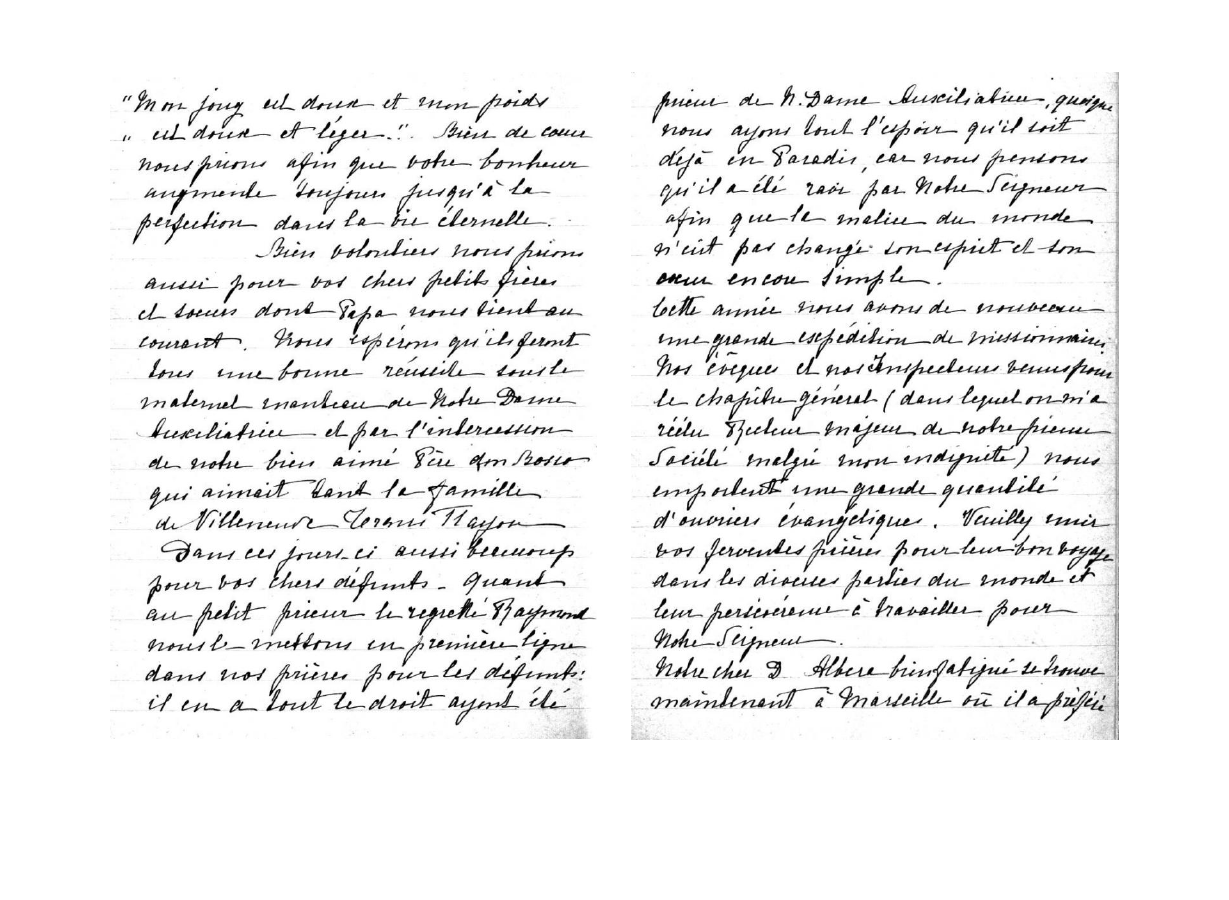 "Mon joug est doux et mon poids
" est doux et léger.". Bien de cœur
nous prions afin que votre bonheur
augmente toujours jusqu'à la
perfection dans la vie éternelle.
Bien volontiers nous prions
aussi pour vos chers petits frères
et soeurs dont Papa nous tient au
courant. Nous espérons qu'ils feront
tous une bonne réussite sous le
maternel manteau de Notre Dame
Auxiliatrice et par l'intercession
de notre bien aimé Père don Bosco
qui aimait tant la famille
de Villeneuve
Dans ces jours-ci aussi beaucoup
pour vos chers défunts - Quant
au petit prieur le regretté Raymond
nous le mettons en première ligne
dans nos prières pour les défunts:
il en a tout le droit ayant été
prieur de N. Dame Auxiliatrice, quoique
nous ayons tout l'espoir qu'il soit
déjà en Paradis, car nous pensons
qu'il a été ravi par Notre Seigneur
afin que la malice du monde
n'eut pas changé son esprit et son
cœur encore simple.
Cette année nous avons de nouveau
une grande expédition de missionnaires.
Nos évêques et nos Inspecteurs venus pour
le chapitre général (dans lequel on m'a
réélu Recteur majeur de notre pieuse
Société malgré mon indignité) nous
emportent une grande quantité
d'ouvriers évangéliques. Veuilly unir
vos ferventes prières pour leur bon voyage
dans les diverses parties du monde et
leur persévérence à travailler pour
Notre Seigneur.
Notre cher D. Albera bien fatigué se trouve
maintenant à Marseille où il a prêfêré